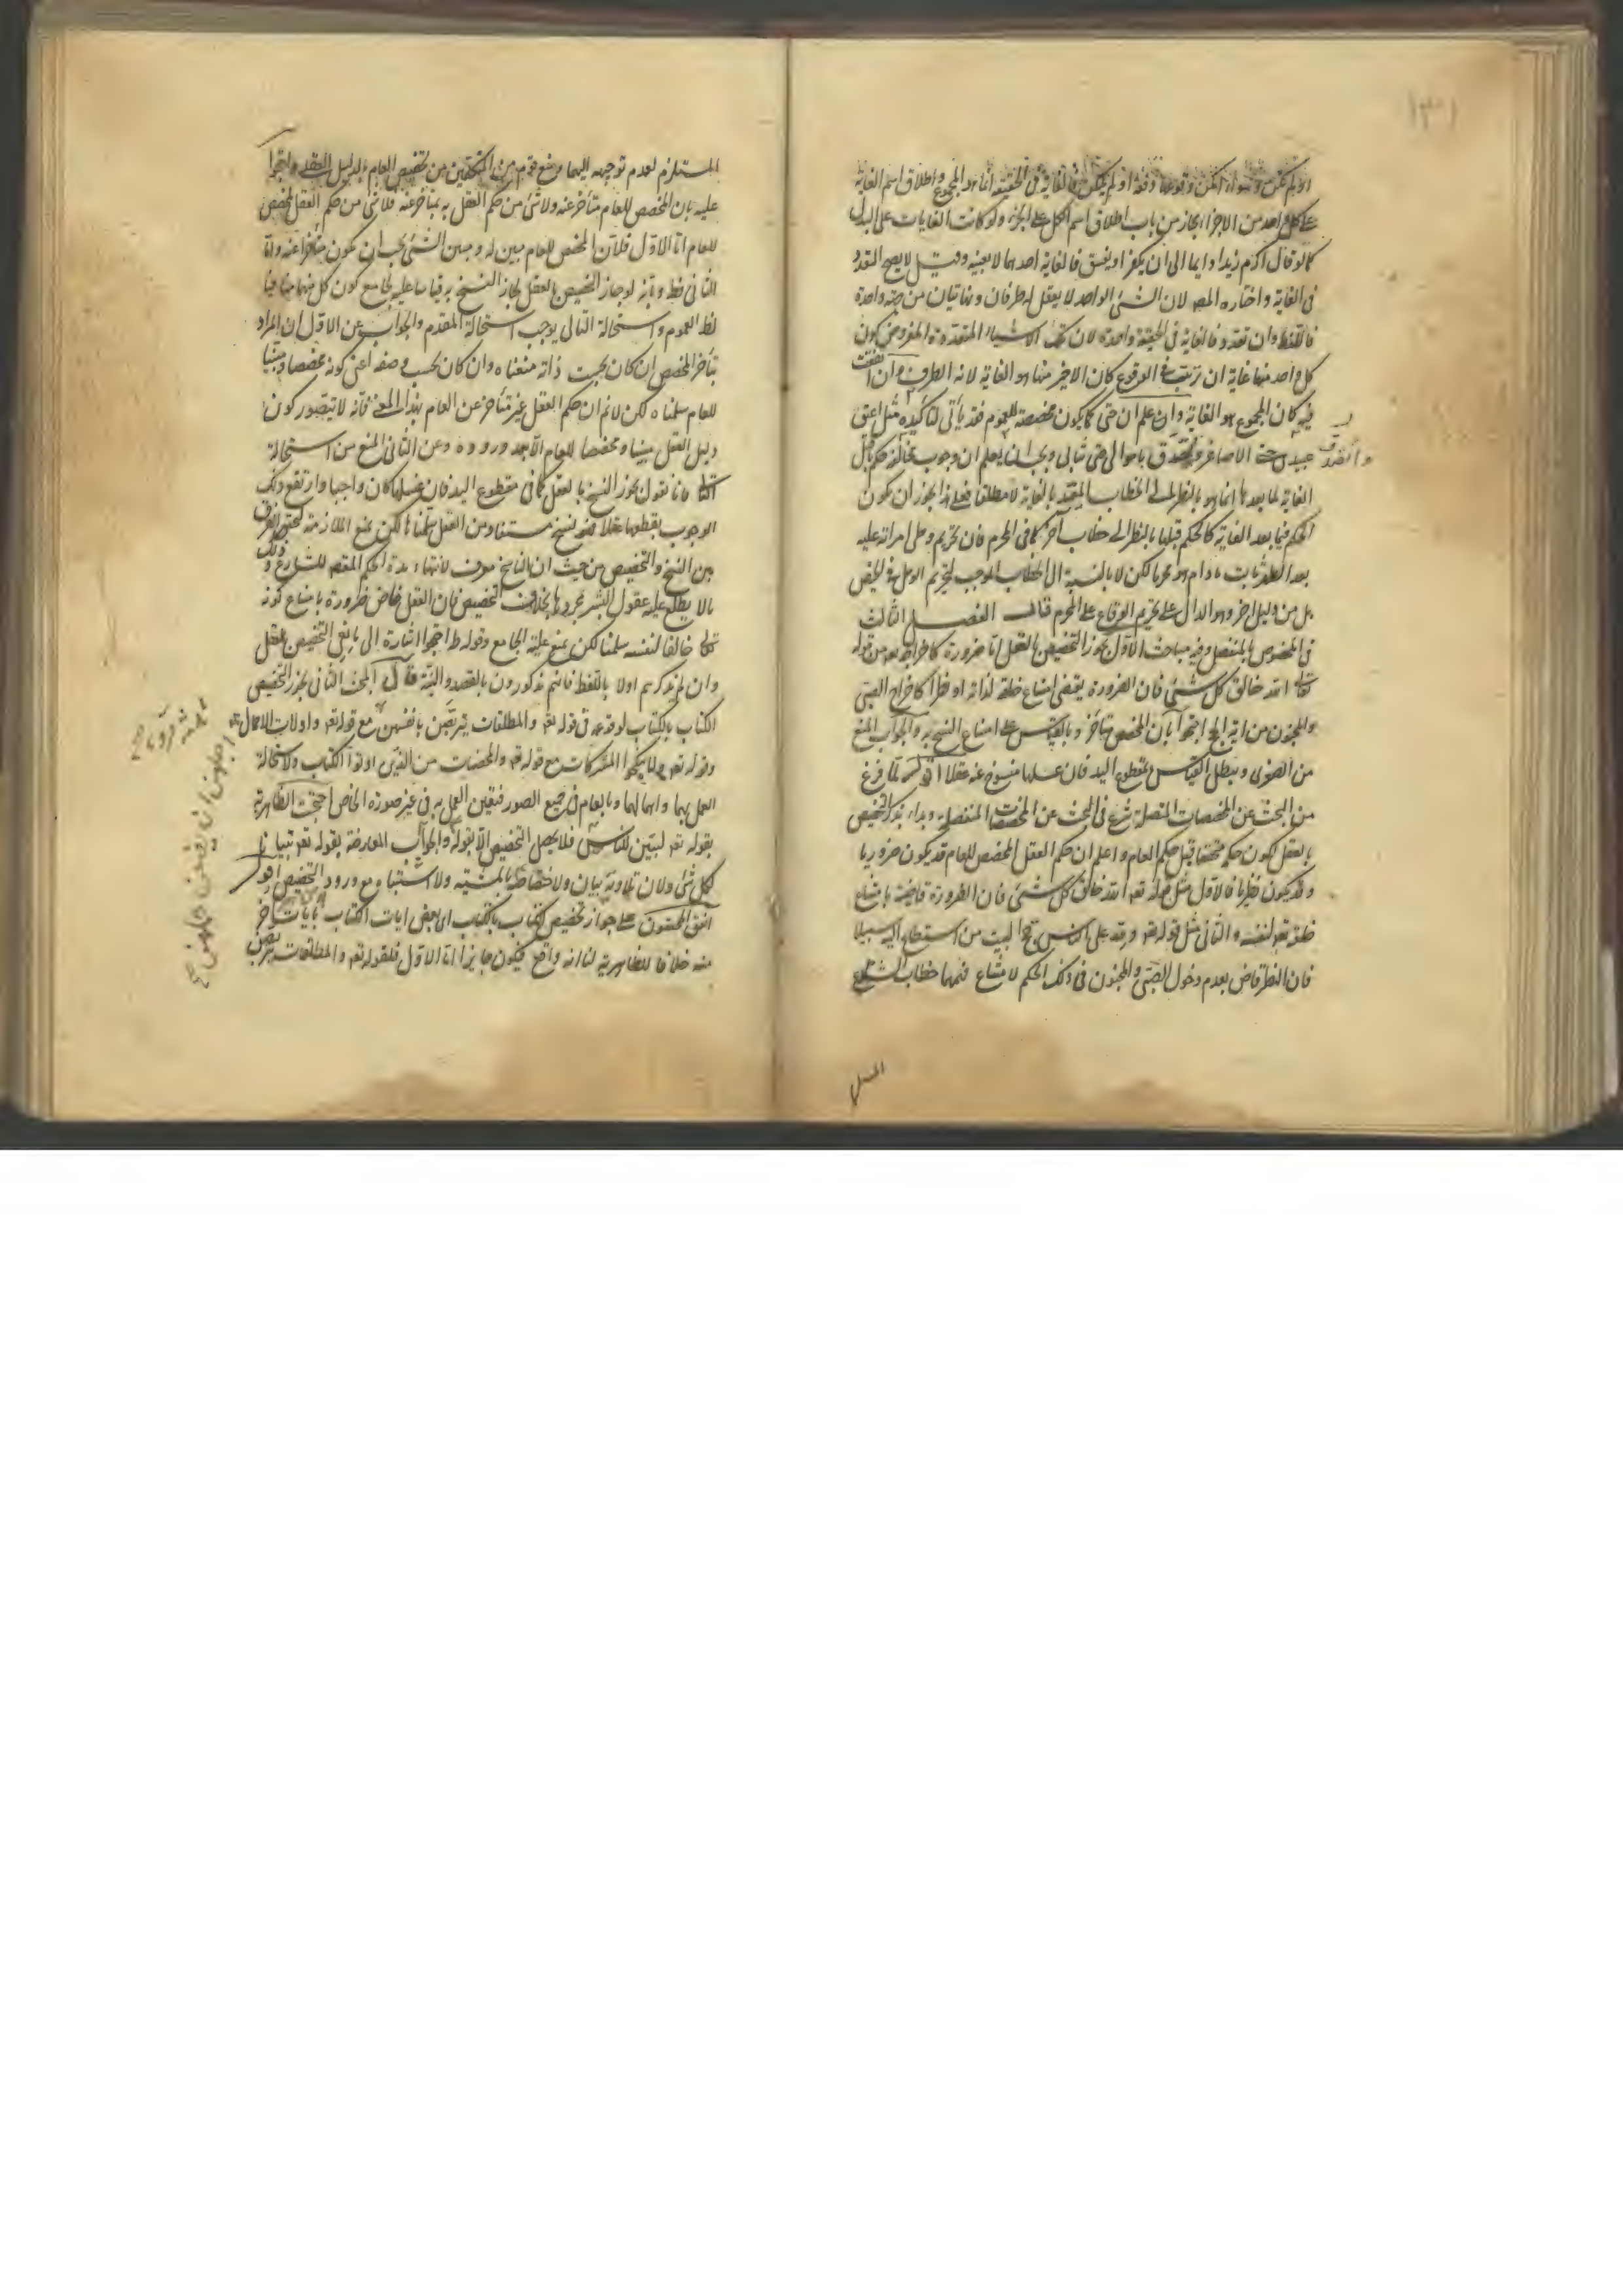 ١٣١
او لم يكن وسواء امكن وقوعها دفعة او لم يكن فالغاية في الحقيقة انما هو المجموع واطلاق اسم الغاية
على كل واحد من الاجزاء مجاز من باب اطلاق اسم الكل على الجزء ولو كانت الغايات على البدل
كما لو قال اكرم زيدا دايما الى ان يكفر او يفسق فالغاية احدهما لا بعينه وقيل لا يصح التعدد
في الغاية واختاره المص لان الشئ الواحد لا يعقل له طرفان ونهايتان من جهة واحدة
فاللفظ وان تعدد فالغاية في الحقيقة واحدة لان تلك الاشياء المتعددة المفروض كون
كل واحد منها غاية ان ترتبت في الوقوع كان الاخير منها هو الغاية لانه الطرف وان اتفقت
فيه كان المجموع هو الغاية وان علم ان حتى كما يكون مخصصة للعموم فقد يأتى لتأكيده مثل اعتق
عبيدى حتى الاصاغر وتصدق باموالى حتى ثيابى ويجب ان يعلم ان وجوب مخالفة حكم ما قبل
الغاية لما بعدها انما هو بالنظر الى الخطاب المقيد بالغاية لا مطلقا فعلى هذا يجوز ان يكون
الحكم فيما بعد الغاية كالحكم قبلها بالنظر الى خطاب آخر كما في المحرم فان تحريم وطى امراته عليه
بعد الطهر ثابت ما دام هو محرما لكن لا بالنسبة الى الخطاب الموجب لتحريم الوطى في الحيض
بل من دليل اخر وهو الدال على تحريم الوقاع على المحرم قال الفصل الثالث
في المخصوص بالمنفصل وفيه مباحث الاول يجوز التخصيص بالعقل اما ضرورة كاخراجه من قوله
تعالى الله خالق كل شئ فان الضرورة يقتضى امتناع خلقه لذاته او نظرا كاخراج الصبى
والمجنون من اية الحج احتجوا بان المخصص متأخر وبالقياس على امتناع النسخ به والجواب المنع
من الصغرى ويبطل القياس بمقطوع اليد فان غسلها منسوخ عنه عقلا اقول لما فرغ
من البحث عن المخصصات المتصلة شرع في البحث عن المخصصات المنفصلة وبداء بذكر التخصيص
بالعقل لكون حكمه متحققا قبل حكم العام واعلم ان حكم العقل المخصص للعام قد يكون ضروريا
وقد يكون نظريا فالاول مثل قوله تعه الله خالق كل شئ فان الضرورة قاضية بامتناع
خلقه تعه لنفسه والثانى مثل قوله تعه ولله على الناس حج البيت من استطاع اليه سبيلا
فان النظر قاض بعدم دخول الصبى والمجنون في ذلك الحكم لامتناع فهمهما خطاب الشارع
المستلزم لعدم توجهه اليهما ومنع قوم من المتكلمين من تخصيص العام بالدليل العقلى واحتجوا
عليه بان المخصص للعام متأخر عنه ولا شئ من حكم العقل به بمتأخر عنه فلا شئ من حكم العقل بمخصص
للعام اما الاول فلان المخصص للعام مبين له ومبين الشئ يجب ان يكون متأخرا عنه واما
الثانى فظ وبانه لو جاز التخصيص بالعقل لجاز النسخ به قياسا عليه بجامع كون كل منهما منافيا
لظ العموم واستحالة التالى يوجب استحالة المقدم والجواب عن الاول ان المراد
بتأخر المخصص ان كان بحسب ذاته منعناه وان كان بحسب وصفه اعنى كونه مخصصا ومبينا
للعام سلمناه لكن لا نم ان حكم العقل غير متأخر عن العام بهذا المعنى فانه لا يتصور كون
دليل العقل مبينا ومخصصا للعام الا بعد وروده وعن الثانى المنع من استحالة
التالى فانا نقول بجواز النسخ بالعقل كما في مقطوع اليد فان غسلها كان واجبا وارتفع ذلك
الوجوب بقطعها عقلا فهو نسخ مستفاد من العقل سلمنا لكن نمنع الملازمة لتحقق الفرق
بين النسخ والتخصيص من حيث ان الناسخ معرف لانتهاء مدة الحكم المقصود للشارع وذلك
مما لا يطلع عليه عقول البشر بمجردها بخلاف التخصيص فان العقل قاض ضرورة بامتناع كونه
تعالى خالقا لنفسه سلمنا لكن نمنع علية الجامع وقوله ط احتجوا اشارة الى مانعى التخصيص بالعقل
وان لم يذكرهم اولا باللفظ فانهم مذكورون بالقصد والنية قال البحث الثانى يجوز تخصيص
الكتاب بالكتاب لوقوعه في قوله تعه والمطلقات يتربصن بانفسهن مع قوله تعه واولات الاحمال
وقوله تعه ولا تنكحوا المشركات مع قوله تعه والمحصنات من الذين اوتوا الكتاب ولاستحالة
العمل بهما واهمالهما وبالعام في جميع الصور فيتعين العمل به في غير صورة الخاص احتجت الظاهرية
بقوله تعه لتبين للناس فلا يحصل التخصيص الا بقوله والجواب المعارضة بقوله تعه تبيانا
لكل شئ ولان تلاوته بيان ولاختصاصه بالمشتبه ولا اشتباه مع ورود التخصيص اقول
اتفق المحققون على جواز تخصيص الكتاب بالكتاب اى بعض ايات الكتاب بآيات اخر
منه خلافا للظاهرية لنا انه واقع فيكون جايزا اما الاول فلقوله تعه والمطلقات يتربصن
اجلهن ان يضعن حملهن صح